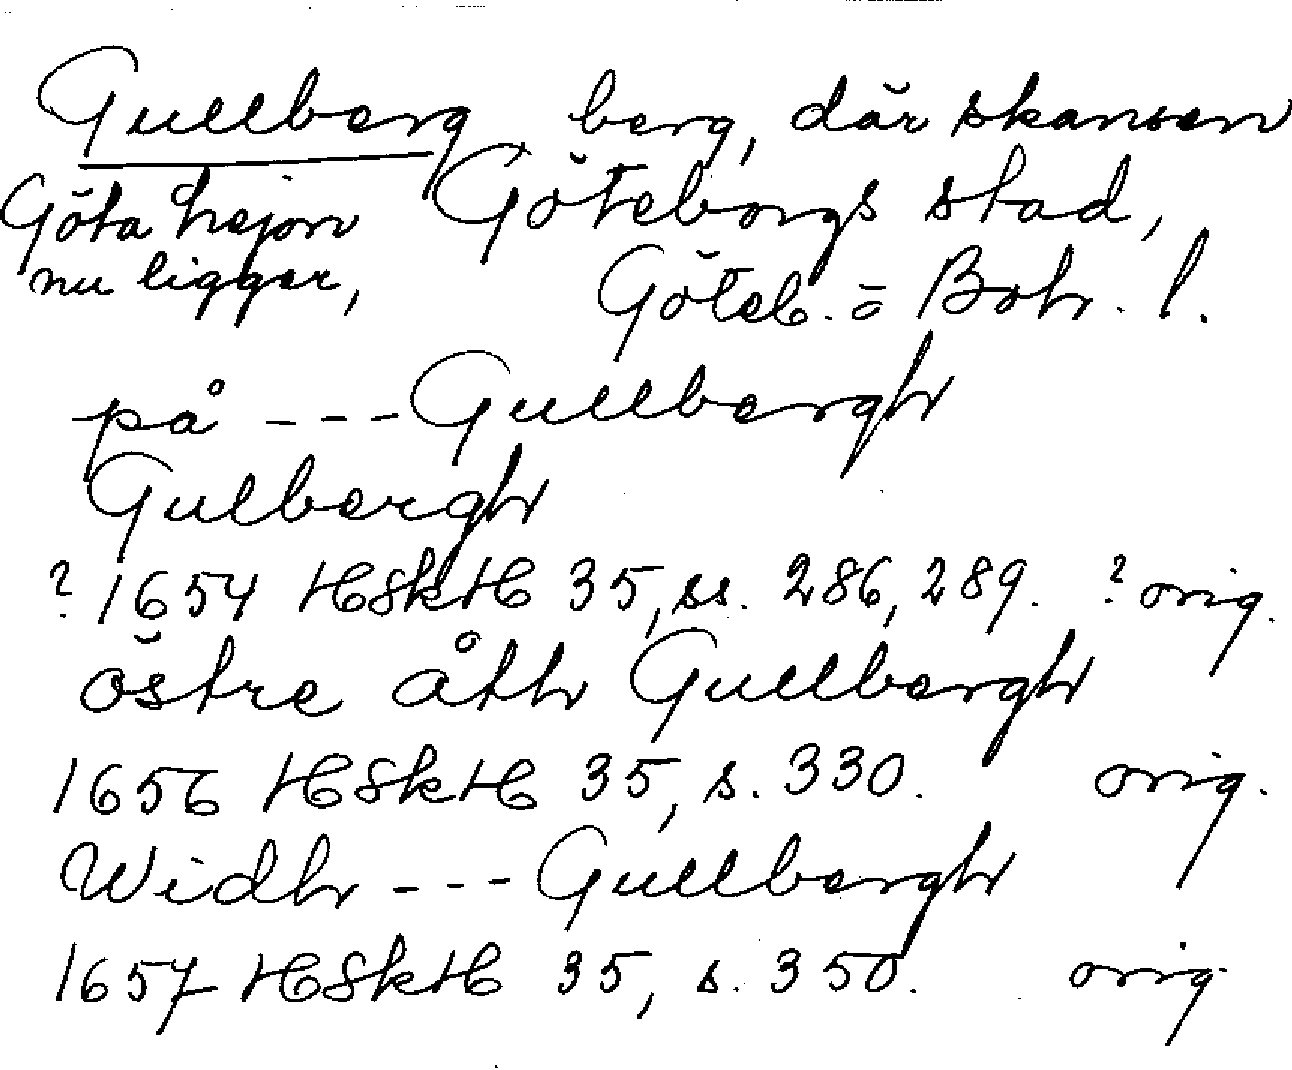 Gullberg, berg, där skansen
Göta lejon nu ligger,
Göteborgs stad,
Göteb. o Boh. l.
på --- Gullbergh
Gulbergh
? 1654 HSkH 35, ss. 286, 289. ? orig.
östre åth Gullbergh
1656 HSkH 35, s. 330. orig.
Widh --- Gullbergh
1657 HSkH 35, s. 350. orig.